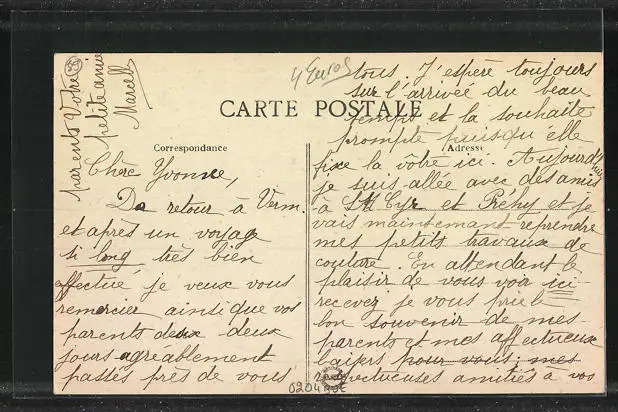 4 Euros
CARTE POSTALE
Correspondance
Adresse
Chère Yvonne,
De retour à Verm.
et après un voyage
si long très bien
effectué je veux vous
remercier ainsi que vos
parents deux
jours agréablement
passés près de vous
tous. J'espère toujours
sur l'arrivée du beau
temps et la souhaite
prompte puisqu'elle
fixe la vôtre ici. Aujourd'hui
je suis allée avec des amis
à St Cyr et Préhy et je
vais maintenant reprendre
mes petits travaux de
couture. En attendant le
plaisir de vous voir ici
recevez je vous prie le
bon souvenir de mes
parents et mes affectueux
baisers pour vous; mes
respectueuses amitiés à vos
parents Votre
petite amie
Marcelle